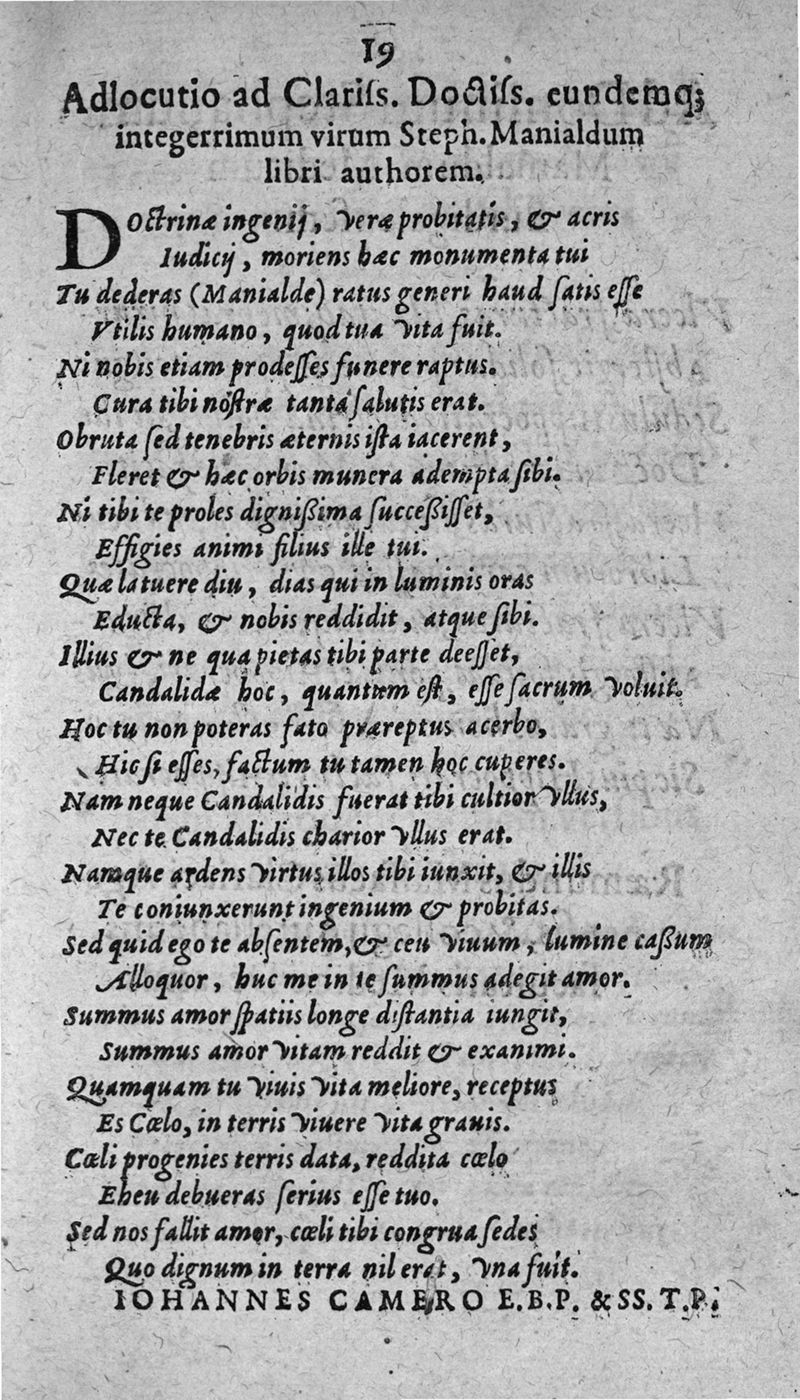 19
Adlocutio ad Clariſs. Doctiſs. eundemq;
integerrimum virum Steph. Manialdum
libri authorem.
DOctrinæ ingenij, veræ probitatis, & acris
Iudicij, moriens hæc monumenta tui
Tu dederas (Manialde) ratus generi haud ſatis eſſe
Vtilis humano, quod tua vita fuit.
Ni nobis etiam prodeſſes funere raptus.
Cura tibi noſtræ tanta ſalutis erat.
Obruta ſed tenebris æternis iſta iacerent,
Fleret & hæc orbis munera adempta ſibi.
Ni tibi te proles digniſſima ſucceſſiſſet,
Effigies animi filius ille tui.
Quæ latuere diu, dias qui in luminis oras
Educta, & nobis reddidit, atque ſibi.
Illius & ne qua pietas tibi parte deeſſet,
Candalidæ hoc, quantum eſt, eſſe ſacrum voluit.
Hoc tu non poteras fato præreptus acerbo,
Hic ſi eſſes, factum tu tamen hoc cuperes.
Nam neque Candalidis fuerat tibi cultior vllus,
Nec te Candalidis charior vllus erat.
Namque ardens virtus illos tibi iunxit, & illis
Te coniunxerunt ingenium & probitas.
Sed quid ego te abſentem, & ceu viuum, lumine caſſum
Alloquor, huc me in te ſummus adegit amor.
Summus amor ſpatiis longe diſtantia iungit,
Summus amor vitam reddit & exanimi.
Quamquam tu viuis vita meliore, receptus
Es Cœlo, in terris viuere vita grauis.
Cœli progenies terris data, reddita cœlo
Eheu debueras ſerius eſſe tuo.
Sed nos fallit amor, cœli tibi congrua ſedes
Quo dignum in terra nil erat, vna fuit.
IOHANNES CAMERO E.B.P. & SS. T.P.